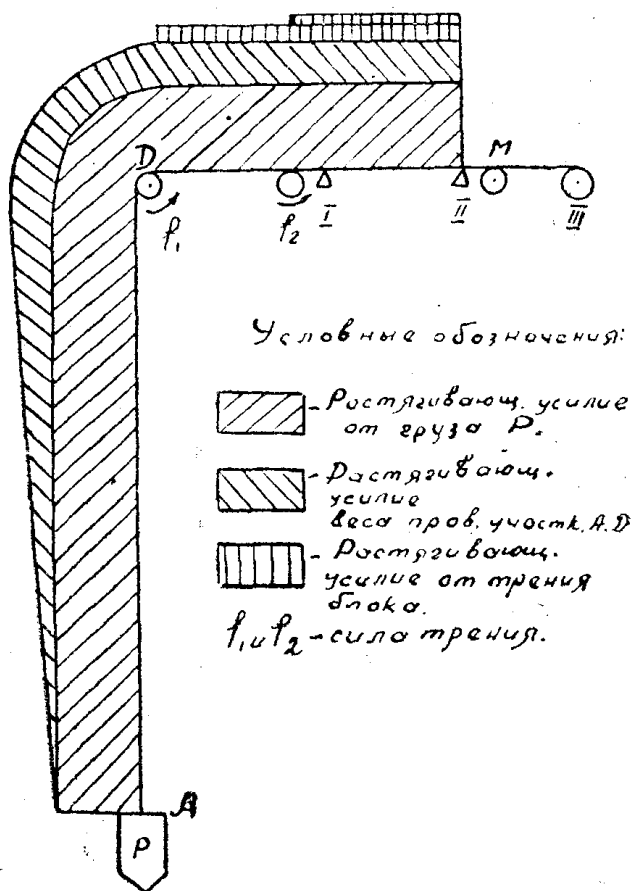 D
M
f₁
f₂
I
II
III
Условные обозначения:
- Растягивающ. усилие
от груза P.
- Растягивающ.
усилие
веса пров. участк. A.D
- Растягивающ.
усилие от трения
блока.
f₁ и f₂ - сила трения.
A
P